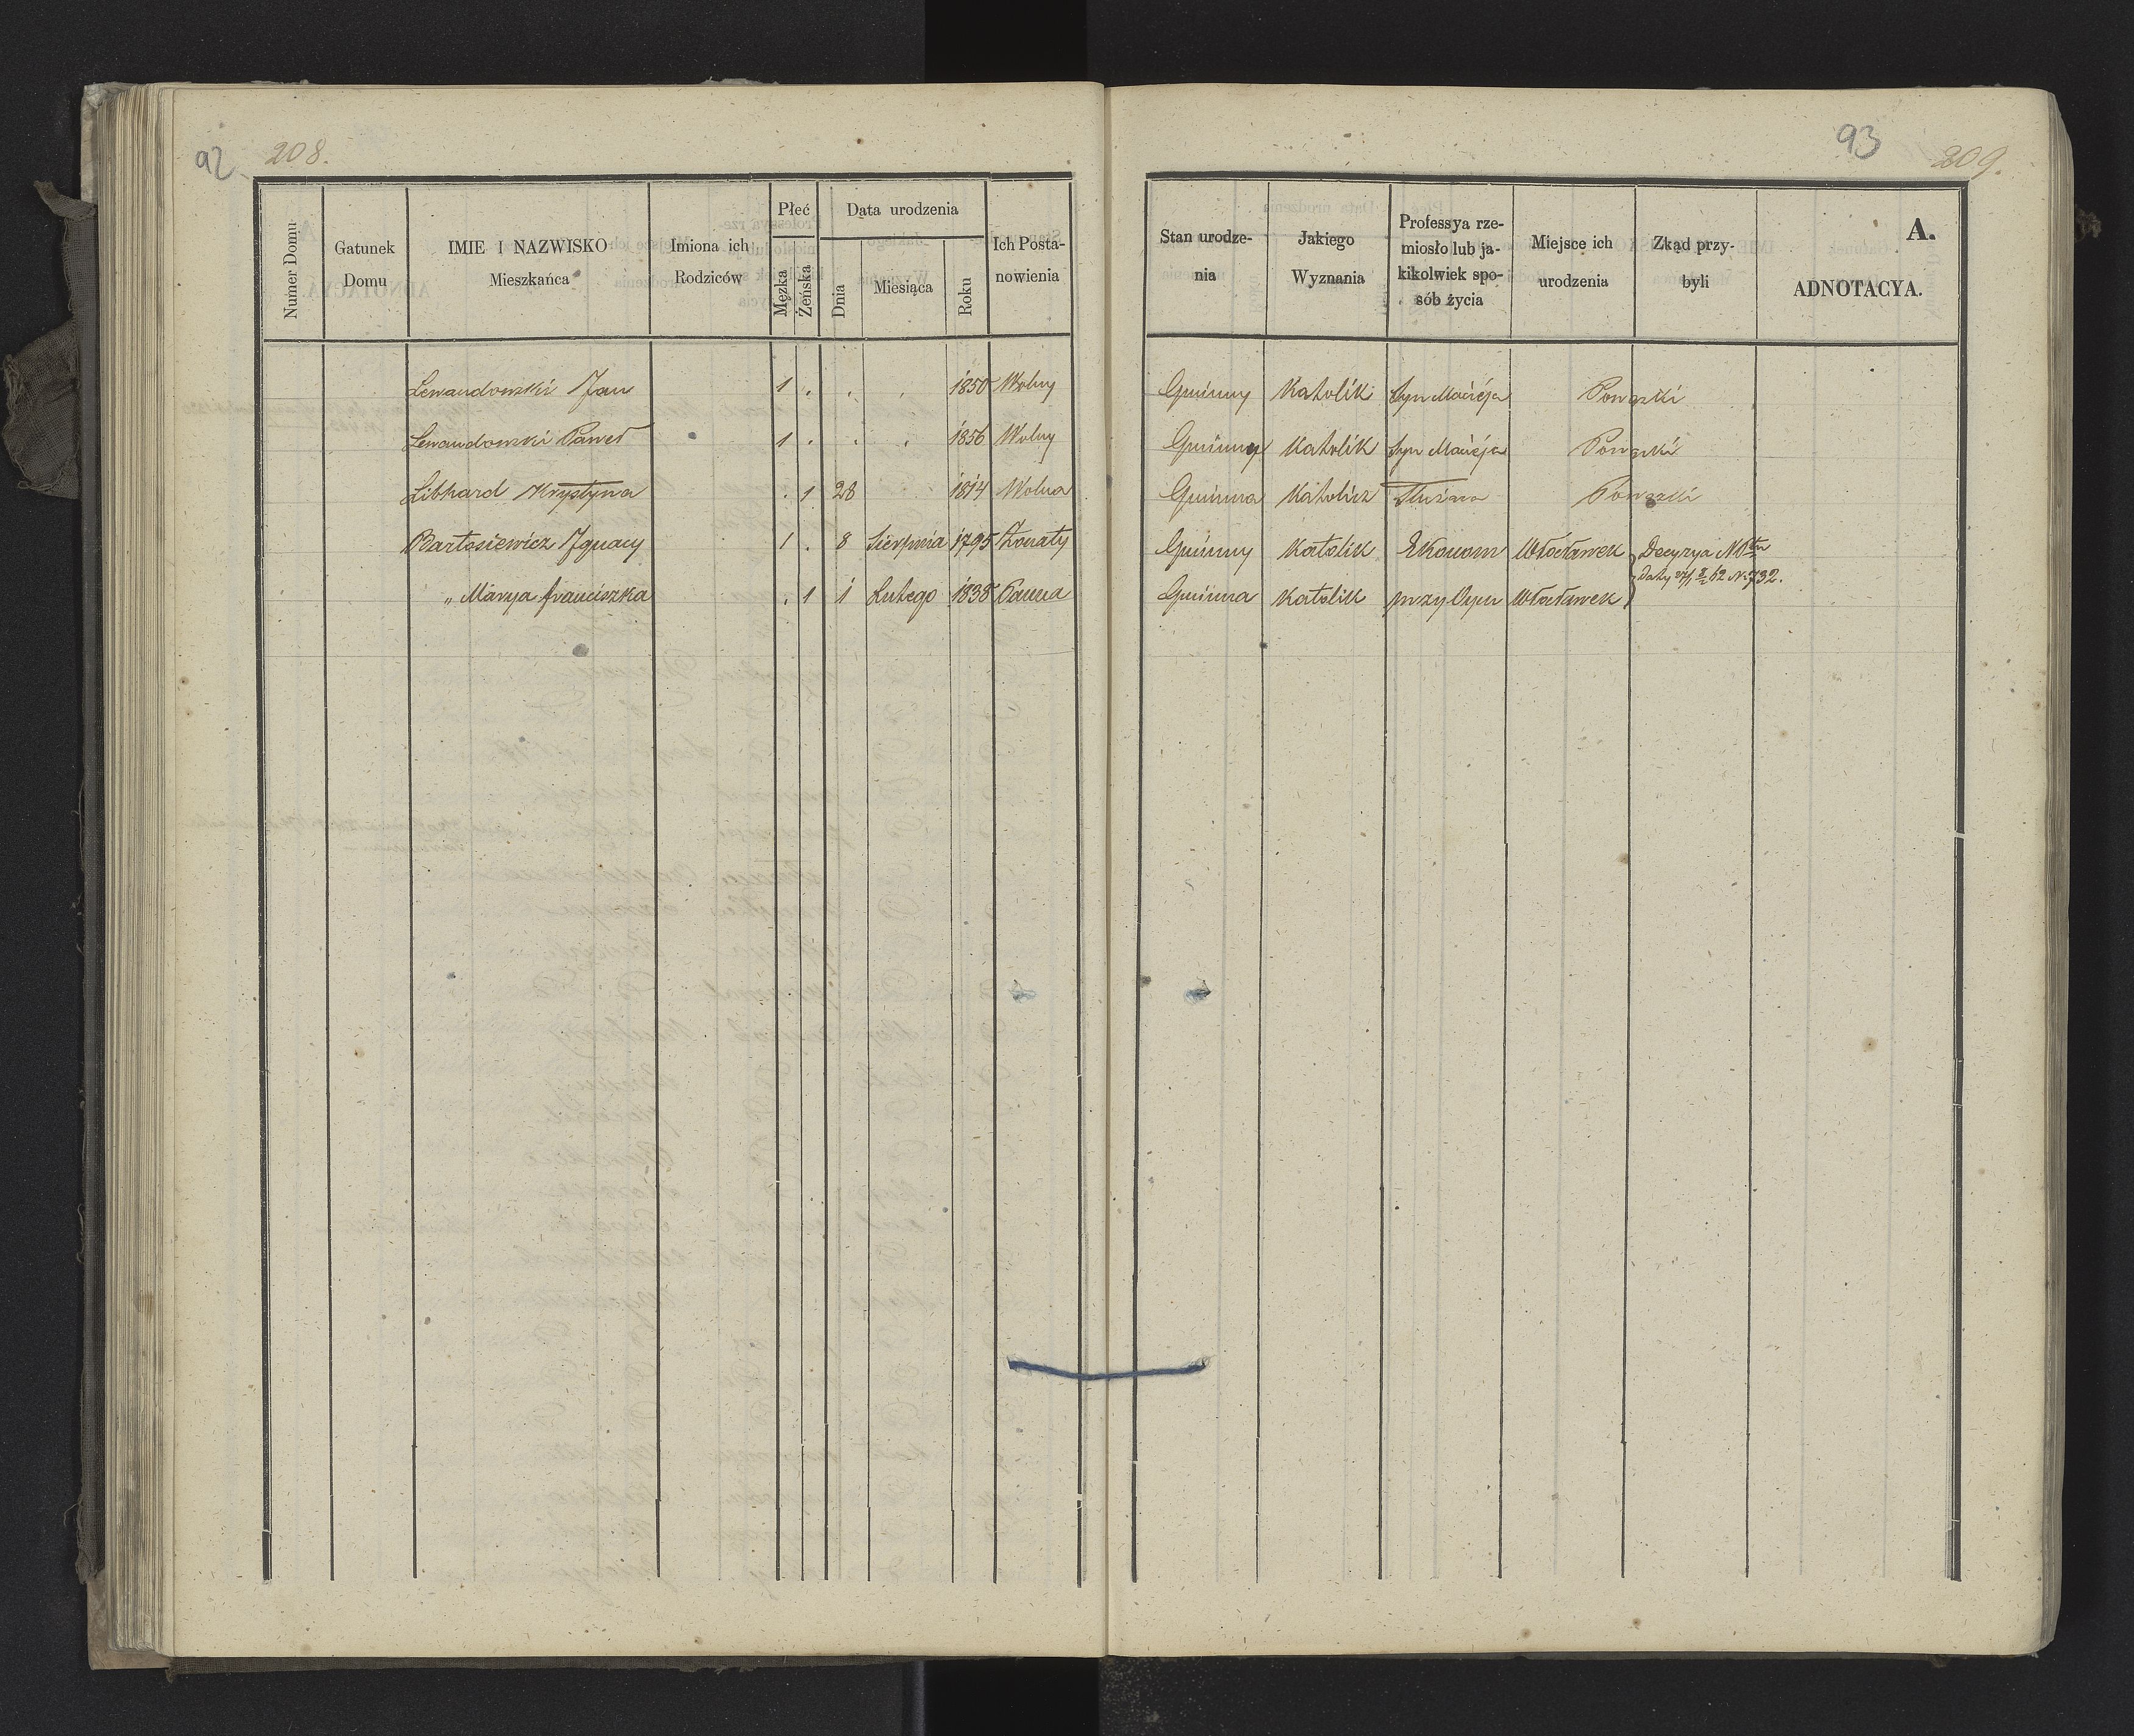 92 208.
93 209.
Numer Domu
Gatunek Domu
IMIE I NAZWISKO Mieszkańca
Imiona ich Rodziców
Płeć
Mężka
Żeńska
Data urodzenia
Dnia
Miesiąca
Roku
Ich Posta-nowienia
Stan urodze-nia
Jakiego Wyznania
Professya rze-miosło lub ja-kikolwiek spo-sób życia
Miejsce ich urodzenia
Zkąd przy-byli
A.
ADNOTACYA.
Lewandowski Jan 1 . . . 1850 Wolny Gminny Katolik Syn Macieja Powązki
Lewandowski Paweł 1 . . . 1856 Wolny Gminny Katolik Syn Macieja Powązki
Libhard Krystyna . 1 28 . 1814 Wolna Gminna Katolicz Służąca Powązki
Bartosiewicz Ignacy 1 . 8 Sierpnia 1795 Żonaty Gminny Katolik Ekonom Włocławek Decyzya
„ Marya franciszka . 1 1 Lutego 1838 Panna Gminna Katolik przy Ojcu Włocławek daty 62 N. 732.